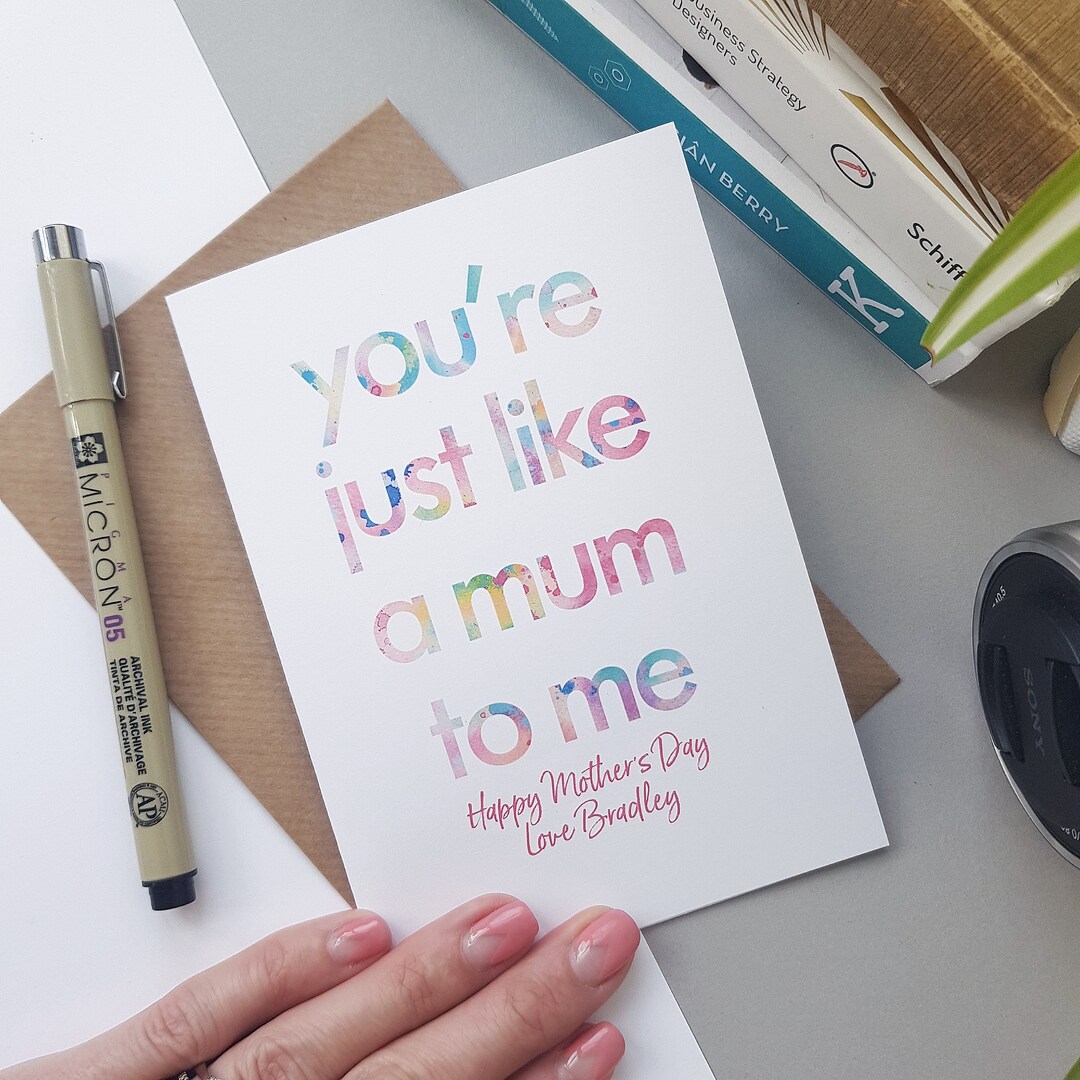 you're
just like
a mum
to me
Happy Mother's Day
Love Bradley
PIGMA
MICRON™ 05
ARCHIVAL INK
QUALITÉ D'ARCHIVAGE
TINTA DE ARCHIVE
ACMI
AP
Business Strategy
Designers
BERRY
Schiff
SONY